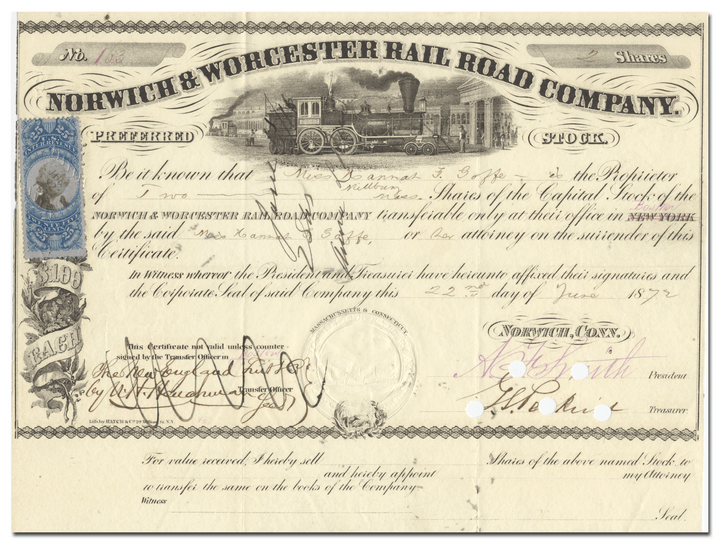 No. 153 2 Shares
NORWICH & WORCESTER RAIL ROAD COMPANY.
PREFERRED STOCK.
Be it known that Miss Hannah F. Goffe is the Proprietor
Millbury
of Two Mass Shares of the Capital Stock of the
NORWICH & WORCESTER RAIL ROAD COMPANY transferable only at their office in NEW YORK
by the said Miss Hannah F. Goffe, or her attorney on the surrender of this
Certificate.
In Witness whereof the President and Treasurer have hereunto affixed their signatures and
the Corporate Seal of said Company this 22nd day of June 1872
$100
EACH
MASSACHUSETTS & CONNECTICUT.
NORWICH, CONN.
This Certificate not valid unless counter-
signed by the Transfer Officer in
The New England Trust Co
by Transfer Officer
President
Treasurer
Lith. by HATCH & Co. N.Y.
For value received, I hereby sell Shares of the above named Stock, to
and hereby appoint my Attorney
to transfer the same on the books of the Company
Witness
Seal.